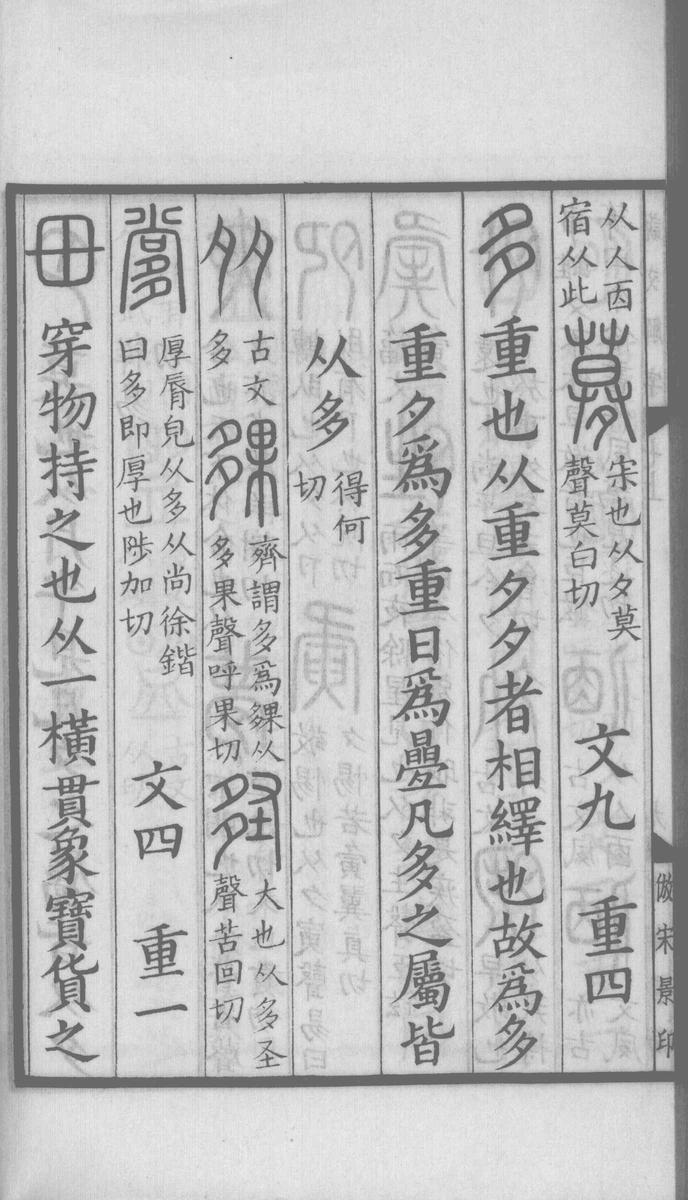 从人㐁
宿从此
㝱
宋也从夕莫
聲莫白切
文九 重四
多 重也从重夕夕者相繹也故爲多
重夕爲多重日爲疊凡多之屬皆
从多
得何
切
𡖇
古文
多
夥
齊謂多爲夥从
多果聲呼果切
𡖶
大也从多圣
聲苦回切
厚脣皃从多从尚徐鍇
曰多即厚也陟加切
文四 重一
毌 穿物持之也从一橫貫象寶貨之
倣宋景印